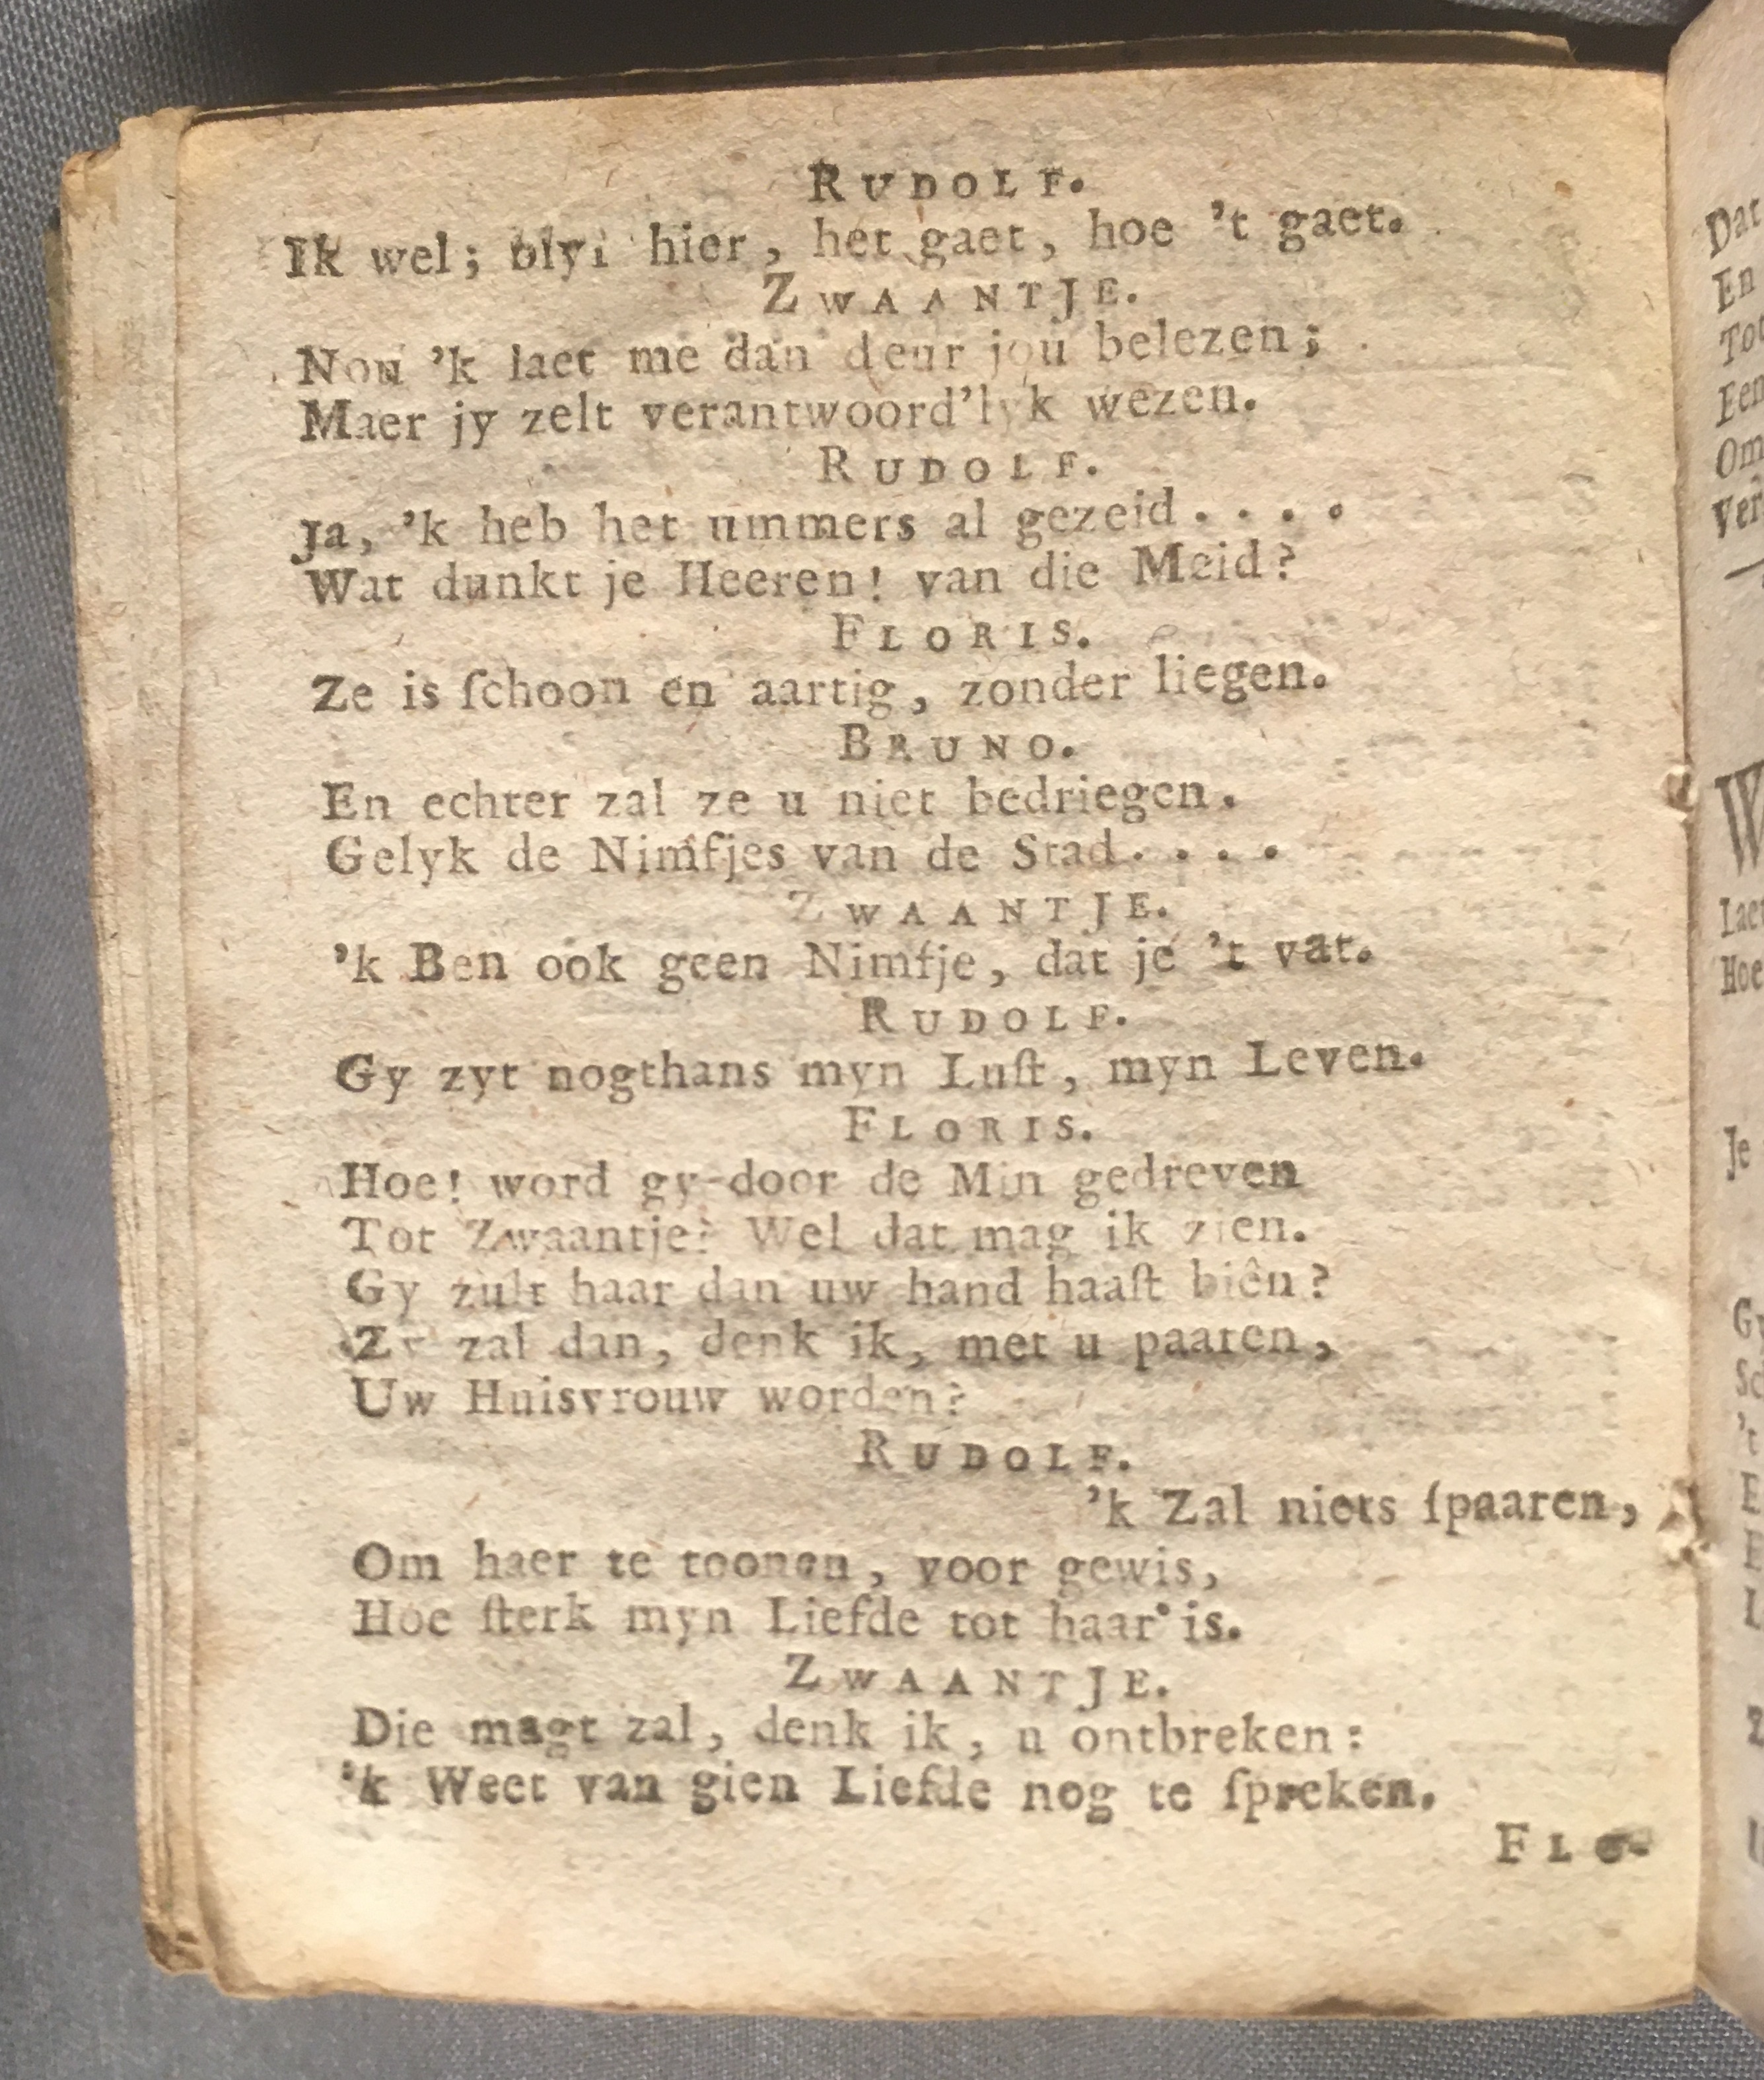 RUDOLF.
Ik wel; blyf hier, het gaet, hoe 't gaet.
ZWAANTJE.
Nou 'k laet me dan deur jou belezen;
Maer jy zelt verantwoord'lyk wezen.
RUDOLF.
Ja, 'k heb het ummers al gezeid....
Wat dunkt je Heeren! van die Meid?
FLORIS.
Ze is ſchoon en aartig, zonder liegen.
BRUNO.
En echter zal ze u niet bedriegen.
Gelyk de Nimfjes van de Stad....
ZWAANTJE.
'k Ben ook geen Nimfje, dat je 't vat.
RUDOLF.
Gy zyt nogthans myn Luſt, myn Leven.
FLORIS.
Hoe! word gy door de Min gedreven
Tot Zwaantje? Wel dat mag ik zien.
Gy zult haar dan uw hand haaſt biên?
Zy zal dan, denk ik, met u paaren,
Uw Huisvrouw worden?
RUDOLF.
'k Zal niets ſpaaren,
Om haer te toonen, voor gewis,
Hoe ſterk myn Liefde tot haar is.
ZWAANTJE.
Die magt zal, denk ik, u ontbreken:
'k Weet van gien Liefde nog te ſpreken.
FLO-
Dat
En
Tot
Een
Om
Laet
Hoe
Je